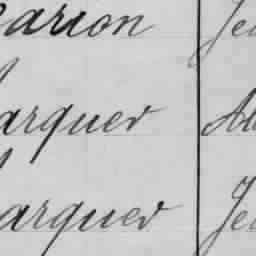 arion Je
arquer Al
arquer Je